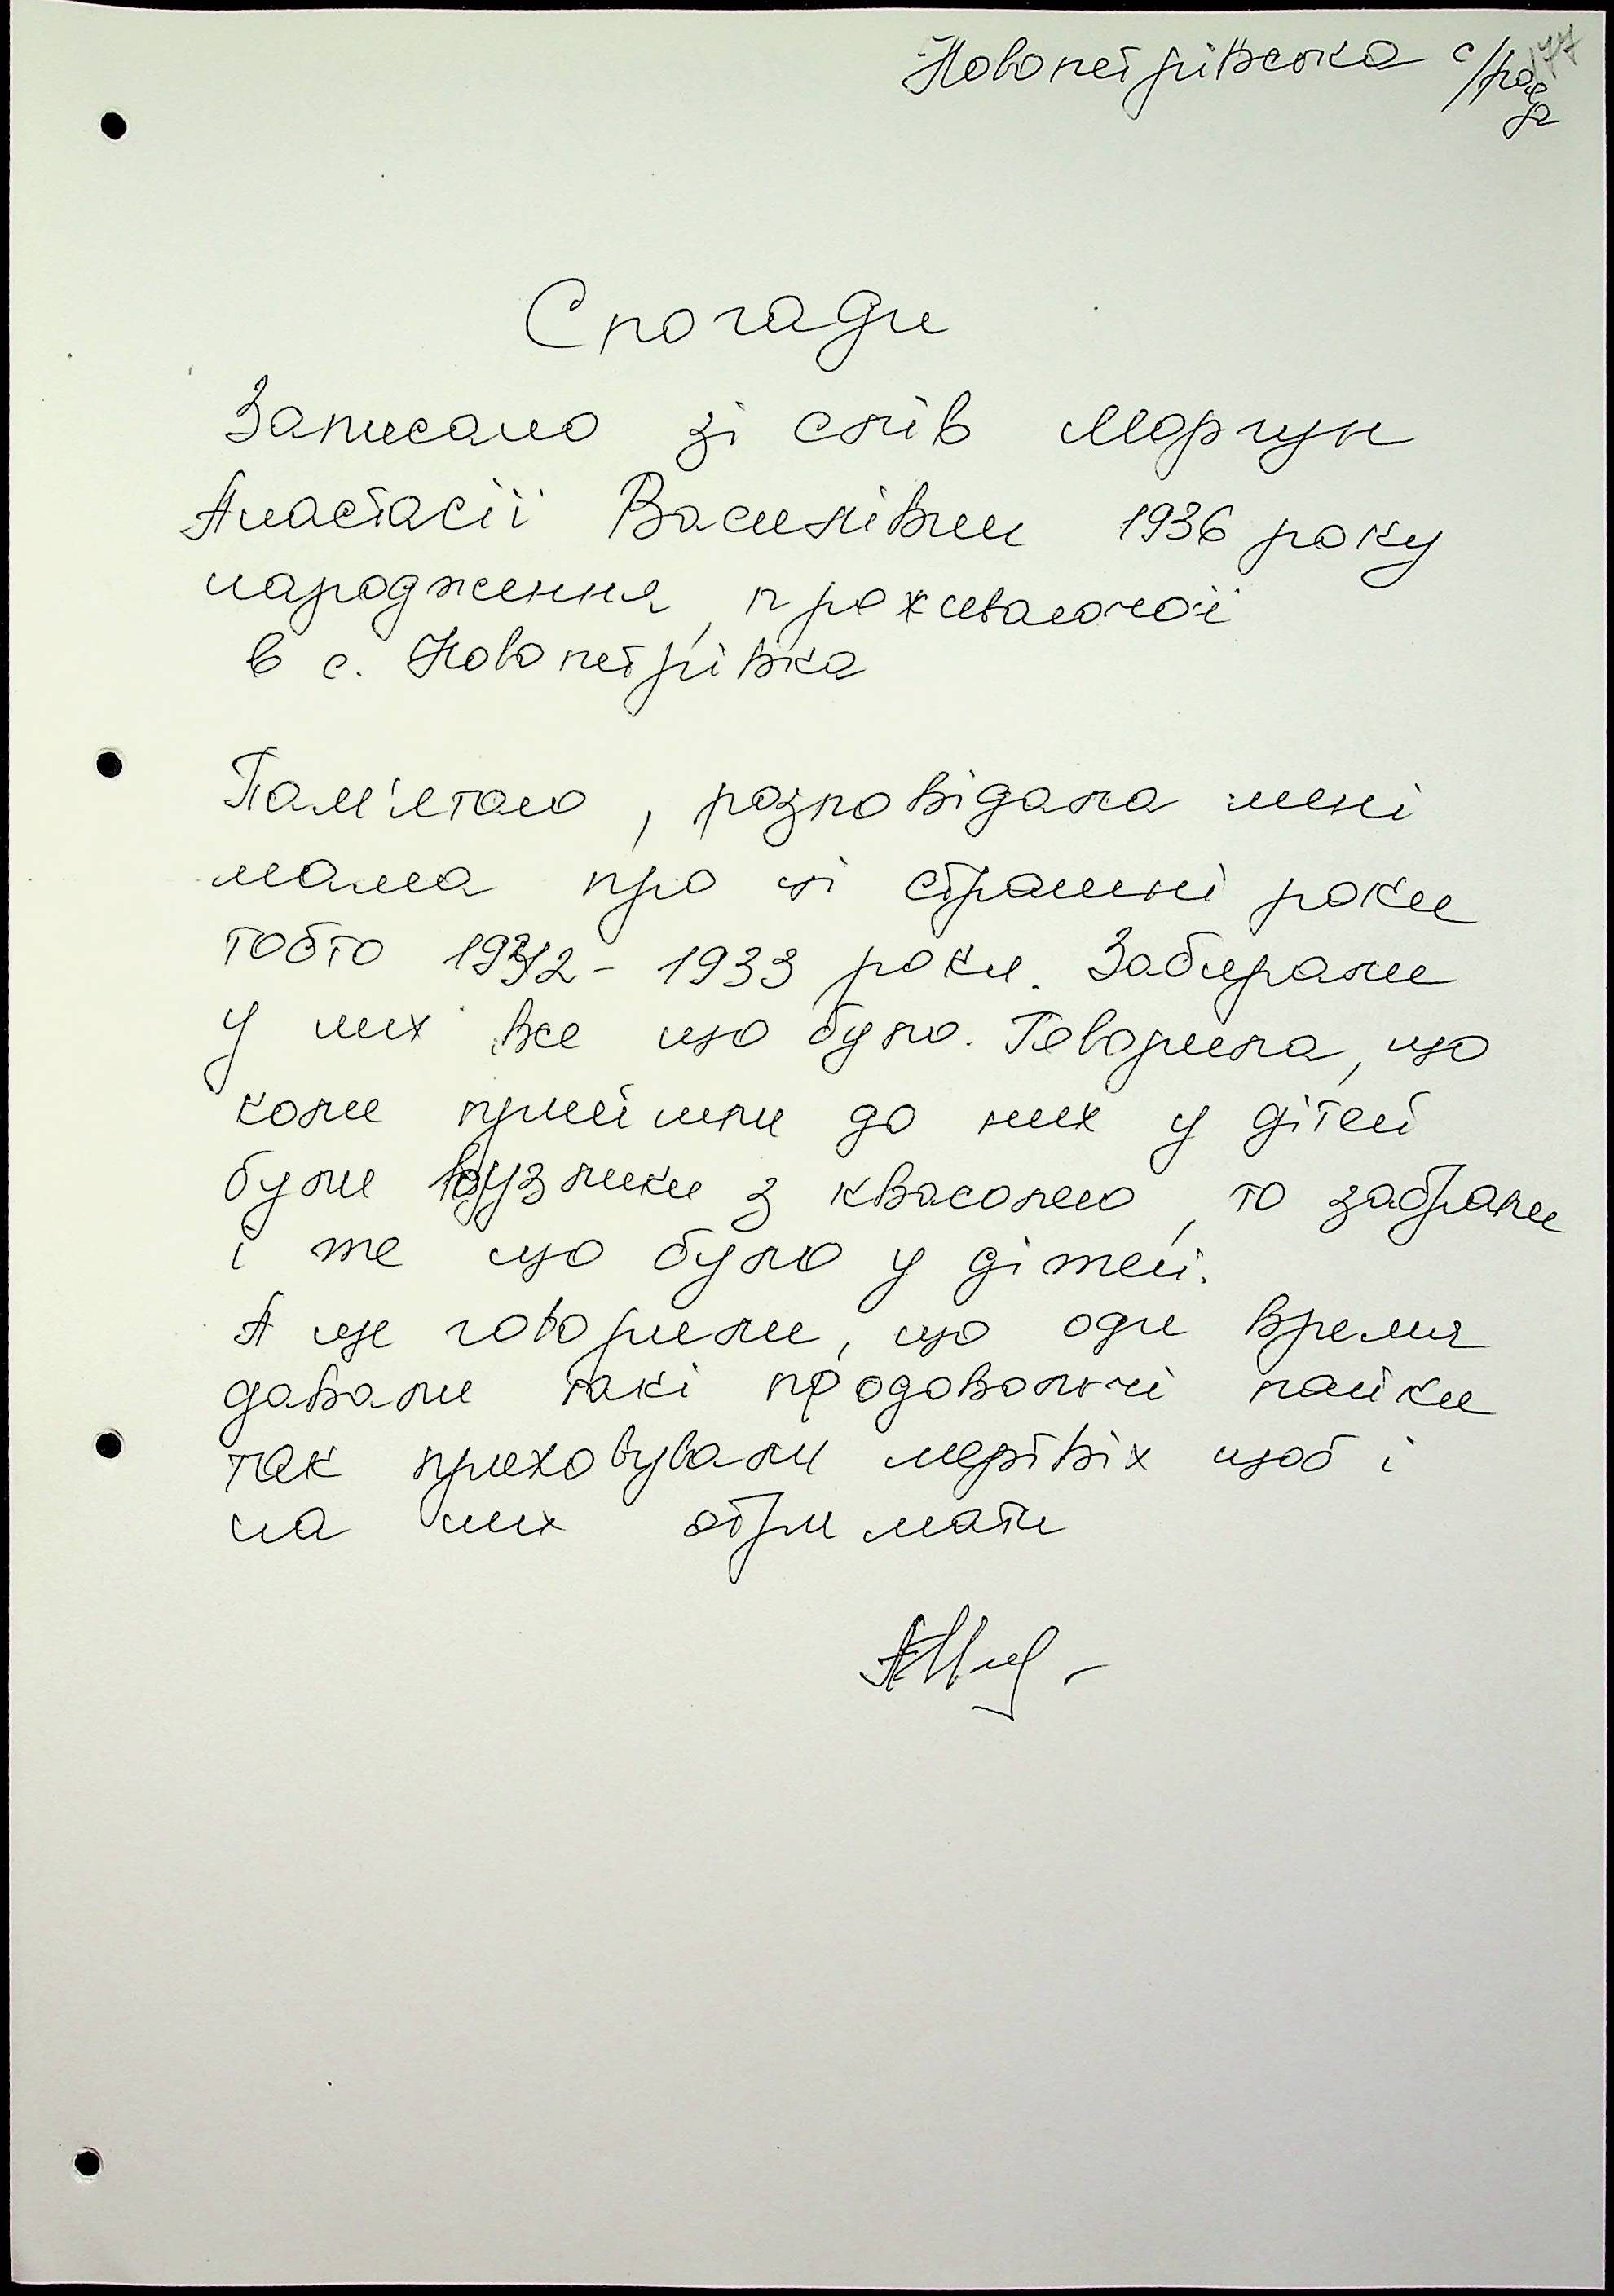 Новопетрівська с/рада
177
Спогади
Записано зі слів Моргун
Анастасії Василівни 1936 року
народження, проживаючої
в с. Новопетрівка
Пам'ятаю, розповідала мені
мама про ті страшні роки
тобто 1932 - 1933 роки. Забирали
у них все що було. Говорила, що
коли прийшли до них у дітей
були вузлики з квасолею, то забрали
і те що було у дітей.
А ще говорили, що одне время
давали такі продовольчі пайки
так приховували мертвих щоб і
на них отримати